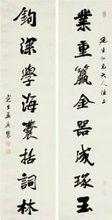 業重籝金器成琢玉
鉤深學海囊括詞林